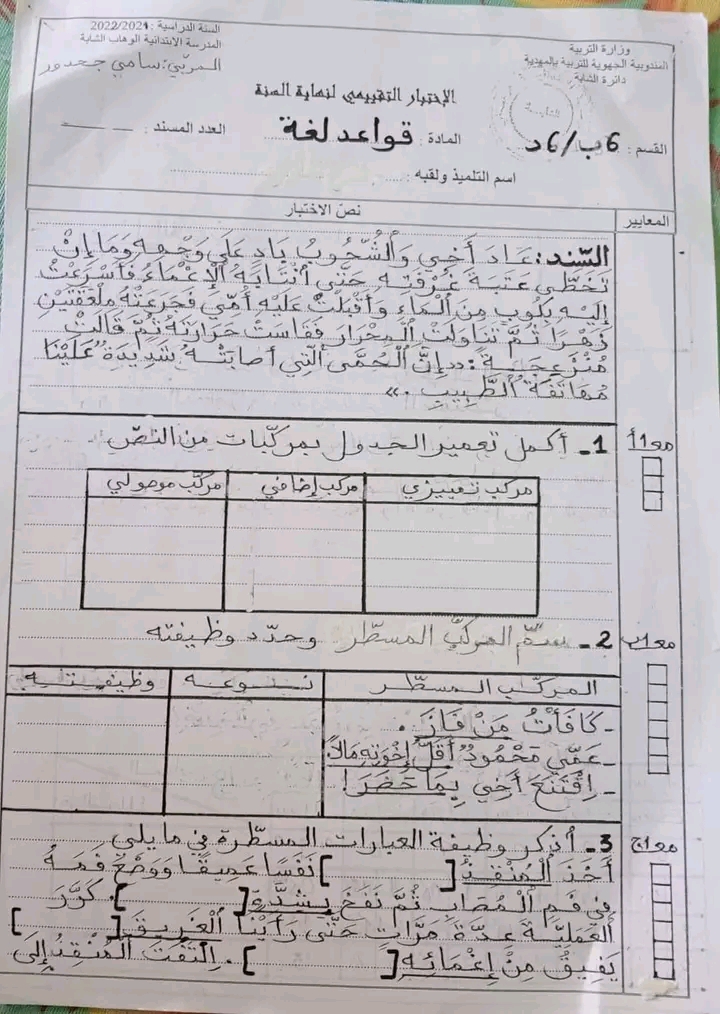 وزارة التربية
المندوبية الجهوية للتربية بالمهدية
دائرة الشابة
السنة الدراسية : 2022/2021
المدرسة الابتدائية الوهاب الشابة
المربّي: سامي جحدور
الإختبار التقييمي لنهاية السنة
القسم : 6ب/6د
المادة : قواعد لغة
العدد المسند :
اسم التلميذ ولقبه :
المعايير
نصّ الاختبار
السّند: عَادَ أَخِي وَالشُّحُوبُ بَادٍ عَلَى وَجْهِهِ وَمَا إِنْ
تَخَطَّى عَتَبَةَ غُرْفَتِهِ حَتَّى انْتَابَهُ الْإِغْمَاءُ فَأَسْرَعْتُ
إِلَيْهِ بِكُوبٍ مِنَ الْمَاءِ وَأَقْبَلَتْ عَلَيْهِ أُمِّي فَجَرَّعَتْهُ مِلْعَقَتَيْنِ
زَهْرًا ثُمَّ تَنَاوَلَتْ الْمِحْرَارَ فَقَاسَتْ حَرَارَتَهُ ثُمَّ قَالَتْ
مُنْزَعِجَةً: «إِنَّ الْحُمَّى الَّتِي أَصَابَتْهُ شَدِيدَةٌ عَلَيْنَا
مُهَاتَفَةُ الطَّبِيبِ.»
مع1أ
1 ـ أكمل تعمير الجدول بمركّبات من النصّ
مركب تمييزي مركب إضافي مركّب موصولي
مع1ب
2 ـ سمّ المركّب المسطّر وحدّد وظيفته
المركّب المسطّر نوعه وظيفته
ـ كَافَأْتُ مَنْ فَازَ .
ـ عَمِّي مَحْمُودٌ أَقَلُّ إِخْوَتِهِ مَالاً.
ـ اِقْتَنَعَ أَخِي بِمَا حَضَرَ !
مع1ج
3 ـ أذكر وظيفة العبارات المسطّرة في ما يلي
أَخَذَ الْمُنْقِذُ [ ] نَفَسًا عَمِيقًا وَوَضَعَ فَمَهُ
فِي فَمِ الْمُصَابِ ثُمَّ نَفَخَ بِشِدَّةٍ [ ]. كَرَّرَ
الْعَمَلِيَّةَ عِدَّةَ مَرَّاتٍ حَتَّى رَأَيْنَا الْغَرِيقَ [ ]
يَفِيقُ مِنْ إِغْمَائِهِ [ ]. اِلْتَفَتَ الْمُنْقِذُ إِلَى